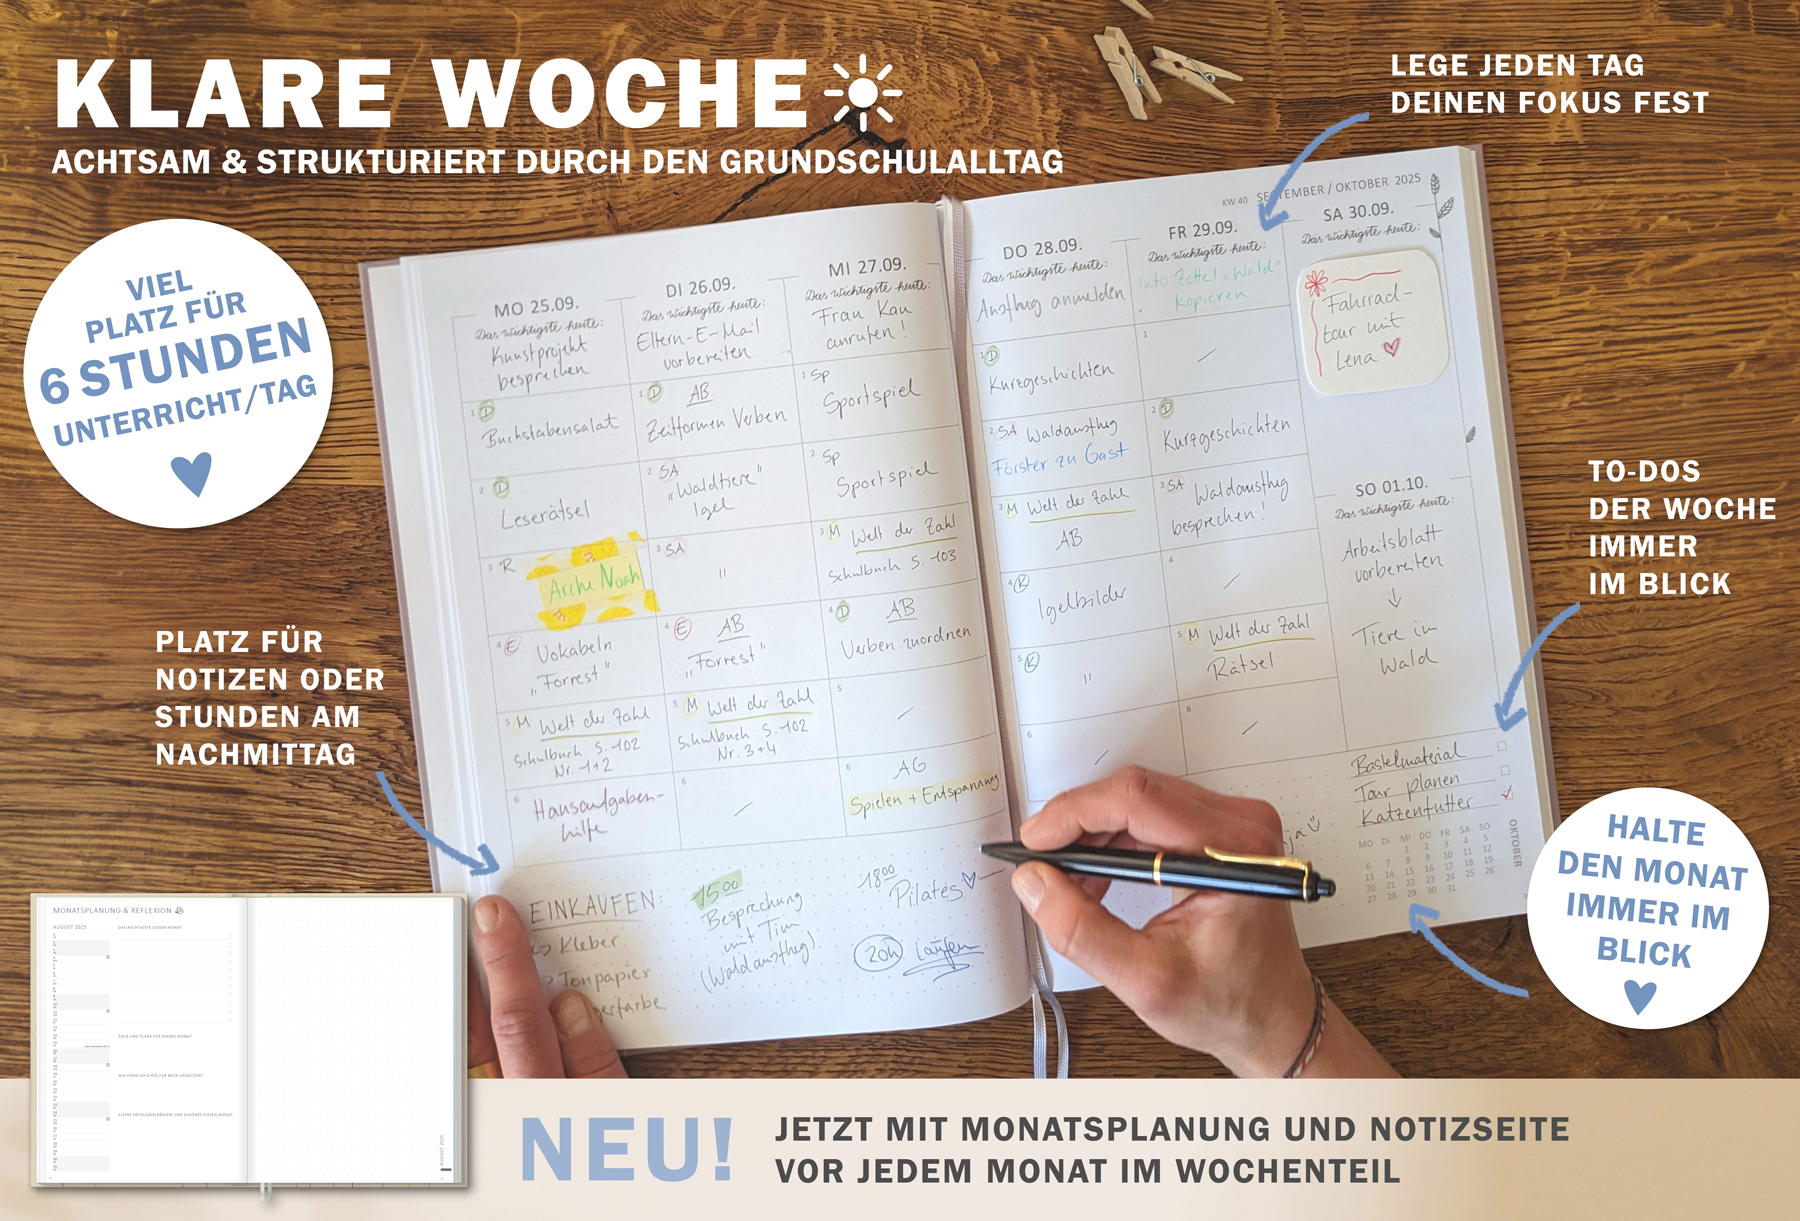 KLARE WOCHE
ACHTSAM & STRUKTURIERT DURCH DEN GRUNDSCHULALLTAG
LEGE JEDEN TAG
DEINEN FOKUS FEST
VIEL
PLATZ FÜR
6 STUNDEN
UNTERRICHT/TAG
PLATZ FÜR
NOTIZEN ODER
STUNDEN AM
NACHMITTAG
TO-DOS
DER WOCHE
IMMER
IM BLICK
HALTE
DEN MONAT
IMMER IM
BLICK
KW 40 SEPTEMBER / OKTOBER 2025
MO 25.09.
Das wichtigste heute:
Kunstprojekt
besprechen
1 D
Buchstabensalat
2 D
Leserätsel
3 R
Arche Noah
4 E
Vokabeln
„Forrest"
5 M Welt der Zahl
Schulbuch S. 102
Nr. 1+2
6
Hausaufgaben-
hilfe
DI 26.09.
Das wichtigste heute:
Eltern-E-Mail
vorbereiten
1 D AB
Zeitformen Verben
2 SA
„Waldtiere"
Igel
3 SA
"
4 E AB
„Forrest"
5 M Welt der Zahl
Schulbuch S. 102
Nr. 3+4
6
/
MI 27.09.
Das wichtigste heute:
Frau Kau
anrufen!
1 Sp
Sportspiel
2 Sp
Sportspiel
3 M Welt der Zahl
Schulbuch S. 103
4 D AB
Verben zuordnen
5
/
6 AG
Spielen + Entspannung
EINKAUFEN:
Kleber
Tonpapier
gerfarbe
15 00
Besprechung
mit Tim
(Waldausflug)
18 00
Pilates
20h laufen
DO 28.09.
Das wichtigste heute:
Ausflug anmelden
1 D
Kurzgeschichten
2 SA Waldausflug
Förster zu Gast
3 M Welt der Zahl
AB
4 K
Igelbilder
5 K
"
6
/
FR 29.09.
Das wichtigste heute:
Info Zettel „Wald"
kopieren
1
/
2 D
Kurzgeschichten
3 SA Waldausflug
besprechen!
4
/
5 M Welt der Zahl
Rätsel
6
/
SA 30.09.
Das wichtigste heute:
Fahrrad-
tour mit
Lena
SO 01.10.
Das wichtigste heute:
Arbeitsblatt
vorbereiten
↓
Tiere im
Wald
Bastelmaterial
Tour planen
Katzenfutter
OKTOBER
MO DI MI DO FR SA SO
1 2 3 4 5
6 7 8 9 10 11 12
13 14 15 16 17 18 19
20 21 22 23 24 25 26
27 28 29 30 31
MONATSPLANUNG & REFLEXION
AUGUST 2025
DAS WICHTIGSTE DIESEN MONAT
ZIELE UND PLÄNE FÜR DIESEN MONAT
WIE KANN ICH DIESE FÜR MICH UMSETZEN?
KLEINE ERFOLGSERLEBNISSE UND SCHÖNES DIESEN MONAT:
AUGUST 2025
NEU!
JETZT MIT MONATSPLANUNG UND NOTIZSEITE
VOR JEDEM MONAT IM WOCHENTEIL